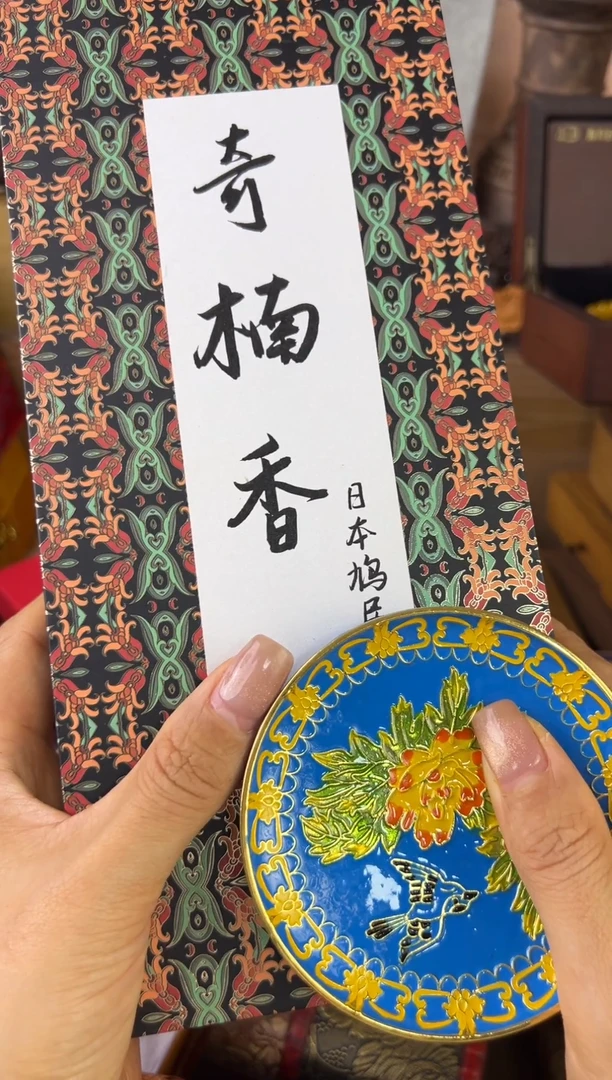 奇楠香
日本鸠居